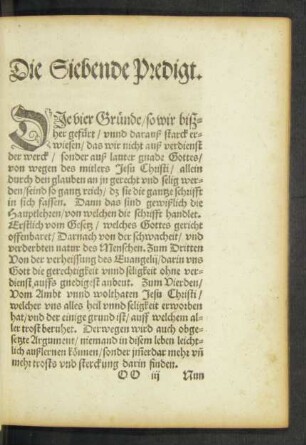 Die Siebende Predigt.
DIe vier Gründe/ so wir biß-
her gefürt/ vnnd darauß starck er-
wiesen/ das wir nicht auß verdienst
der werck/ sonder auß lauter gnade Gottes/
von wegen des mitlers Jesu Christi/ allein
durch den glauben an jn gerecht vnd selig wer-
den/ seind so gantz reich/ dz sie die gantze schrifft
in sich fassen. Dann das sind gewißlich die
Hauptlehren/ von welchen die schrifft handlet.
Erstlich vom Gesetz/ welches Gottes gericht
offenbaret/ Darnach von der schwacheit/ vnd
verderbten natur des Menschen. Zum Dritten
Von der verheissung des Euangelij/ darin vns
Gott die gerechtigkeit vnnd seligkeit ohne ver-
dienst auffs gnedigest anbeut. Zum Vierden/
Vom Ambt vnnd wolthaten Jesu Christi/
welcher vns alles heil vnnd seligkeit erworben
hat/ vnd der einige grund ist/ auff welchem al-
ler trost beruhet. Derwegen wird auch obge-
setzte Argument/ niemand in disem leben leicht-
lich außlernen können/ sonder jm̃erdar mehr vñ
mehr trosts vnd sterckung darin finden.
OO iij Nun